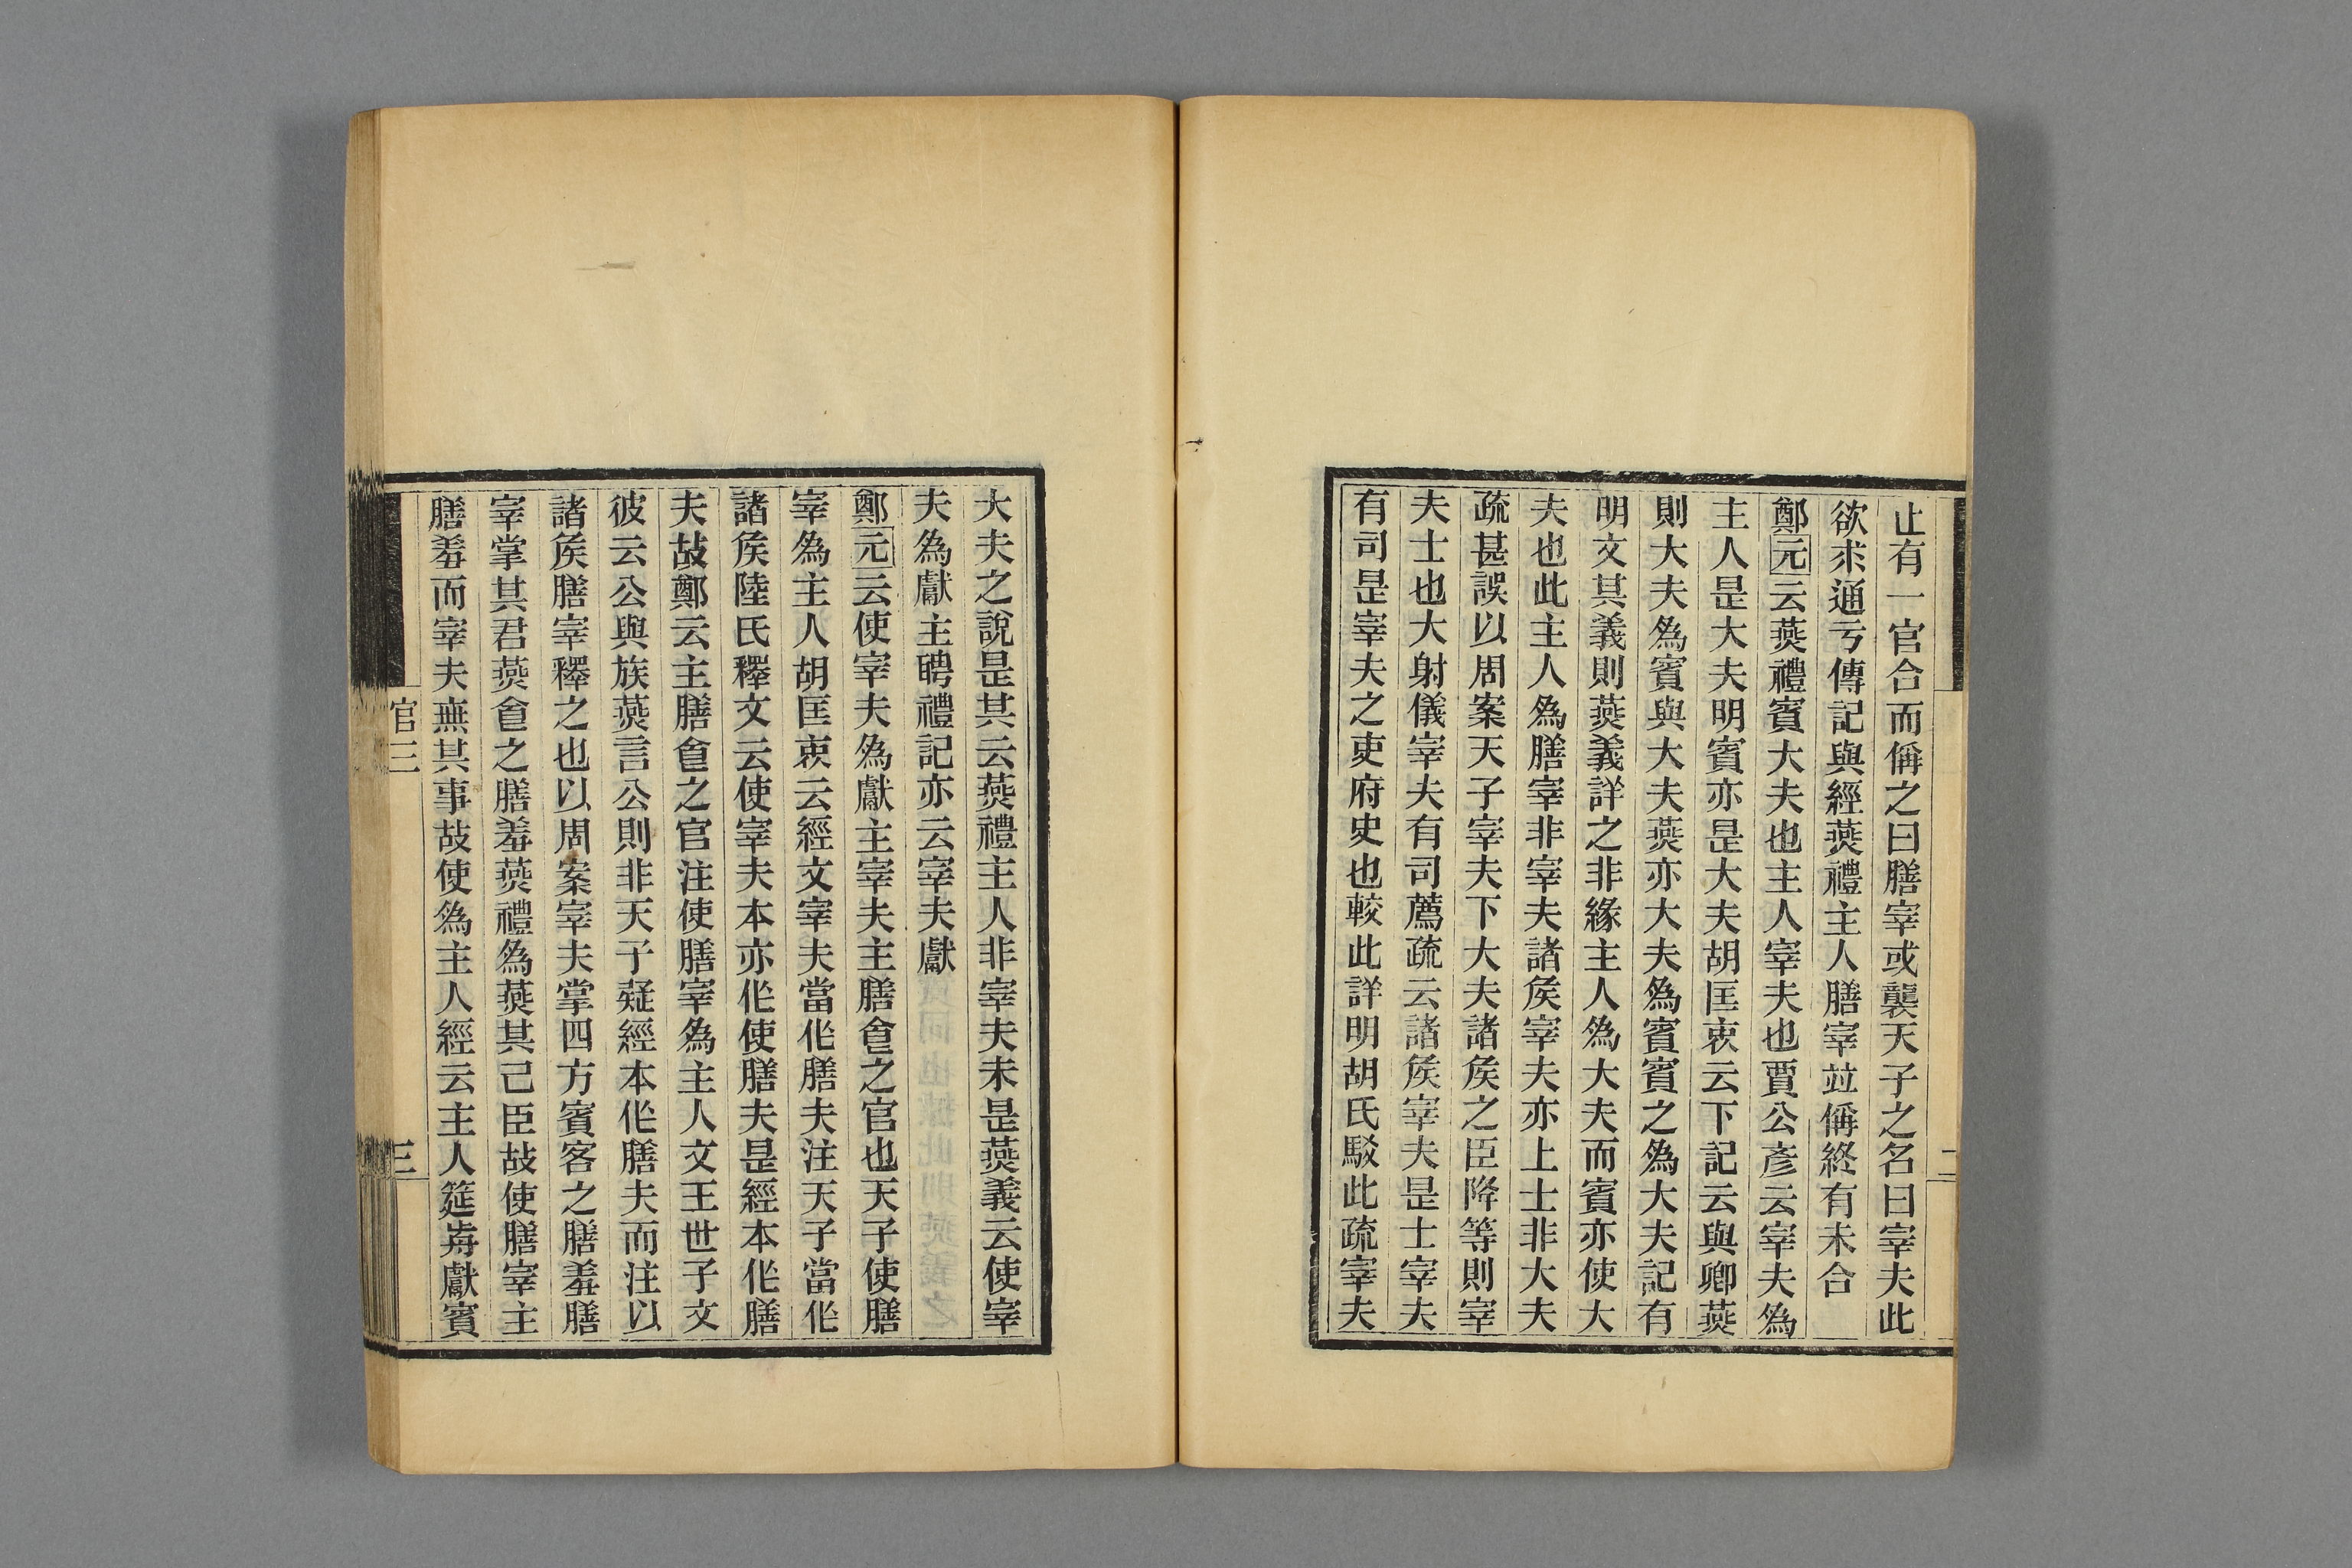 止有一官合而偁之曰膳宰或襲天子之名曰宰夫此
欲求通亏傳記與經燕禮主人膳宰竝偁終有未合
鄭元云燕禮賓大夫也主人宰夫也賈公彥云宰夫爲
主人是大夫明賓亦是大夫胡匡衷云下記云與卿燕
則大夫爲賓與大夫燕亦大夫爲賓賓之爲大夫記有
明文其義則燕義詳之非緣主人爲大夫而賓亦使大
夫也此主人爲膳宰非宰夫諸矦宰夫亦上士非大夫
疏甚誤以周案天子宰夫下大夫諸矦之臣降等則宰
夫士也大射儀宰夫有司薦疏云諸矦宰夫是士宰夫
有司是宰夫之吏府史也較此詳明胡氏駁此疏宰夫
二
大夫之說是其云燕禮主人非宰夫未是燕義云使宰
夫爲獻主聘禮記亦云宰夫獻
鄭元云使宰夫爲獻主宰夫主膳食之官也天子使膳
宰爲主人胡匡衷云經文宰夫當作膳夫注天子當作
諸矦陸氏釋文云使宰夫本亦作使膳夫是經本作膳
夫故鄭云主膳食之官注使膳宰爲主人文王世子文
彼云公與族燕言公則非天子疑經本作膳夫而注以
諸矦膳宰釋之也以周案宰夫掌四方賓客之膳羞膳
宰掌其君燕食之膳羞燕禮爲燕其己臣故使膳宰主
膳羞而宰夫無其事故使爲主人經云主人筵歬獻賓
官三
三